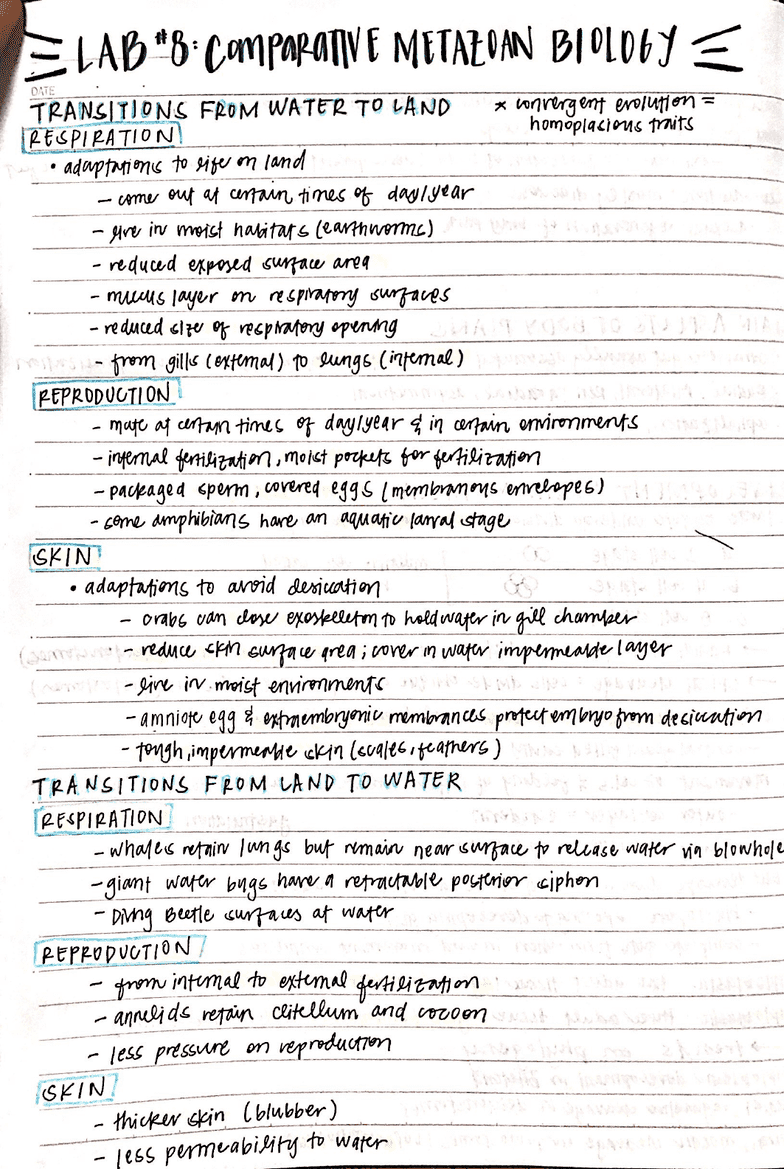 LAB #8: COMPARATIVE METAZOAN BIOLOGY
DATE
TRANSITIONS FROM WATER TO LAND * convergent evolution =
homoplasious traits
RESPIRATION
• adaptations to life on land
- come out at certain times of day/year
- live in moist habitats (earthworms)
- reduced exposed surface area
- mucus layer on respiratory surfaces
- reduced size of respiratory opening
- from gills (external) to lungs (internal)
REPRODUCTION
- mate at certain times of day/year & in certain environments
- internal fertilization, moist pockets for fertilization
- packaged sperm, covered eggs (membranous envelopes)
- some amphibians have an aquatic larval stage
SKIN
• adaptations to avoid desiccation
- crabs can close exoskeleton to hold water in gill chamber
- reduce skin surface area; cover in water impermeable layer
- live in moist environments
- amniote egg & extraembryonic membrances protect embryo from desiccation
- tough, impermeable skin (scales, feathers)
TRANSITIONS FROM LAND TO WATER
RESPIRATION
- whales retain lungs but remain near surface to release water via blowhole
- giant water bugs have a retractable posterior siphon
- Diving Beetle surfaces at water
REPRODUCTION
- from internal to external fertilization
- annelids retain clitellum and cocoon
- less pressure on reproduction
SKIN
- thicker skin (blubber)
- less permeability to water